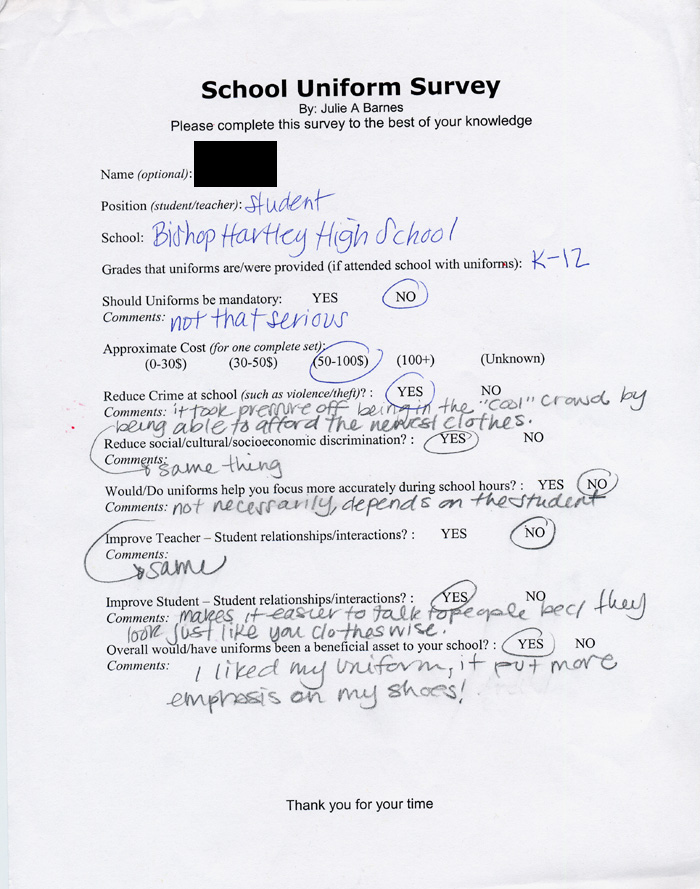 School Uniform Survey
By: Julie A Barnes
Please complete this survey to the best of your knowledge
Name (optional):
Position (student/teacher): Student
School: Bishop Hartley High School
Grades that uniforms are/were provided (if attended school with uniforms): K-12
Should Uniforms be mandatory: YES NO
Comments: not that serious
Approximate Cost (for one complete set):
(0-30$) (30-50$) (50-100$) (100+) (Unknown)
Reduce Crime at school (such as violence/theft)? : YES NO
Comments: it took pressure off being in the "cool" crowd by
being able to afford the newest clothes.
Reduce social/cultural/socioeconomic discrimination? : YES NO
Comments: same thing
Would/Do uniforms help you focus more accurately during school hours? : YES NO
Comments: not necessarily, depends on the student
Improve Teacher – Student relationships/interactions? : YES NO
Comments:
same
Improve Student – Student relationships/interactions? : YES NO
Comments: makes it easier to talk to people bec/ they
look just like you clothes wise.
Overall would/have uniforms been a beneficial asset to your school? : YES NO
Comments: I liked my uniform, it put more
emphasis on my shoes!
Thank you for your time